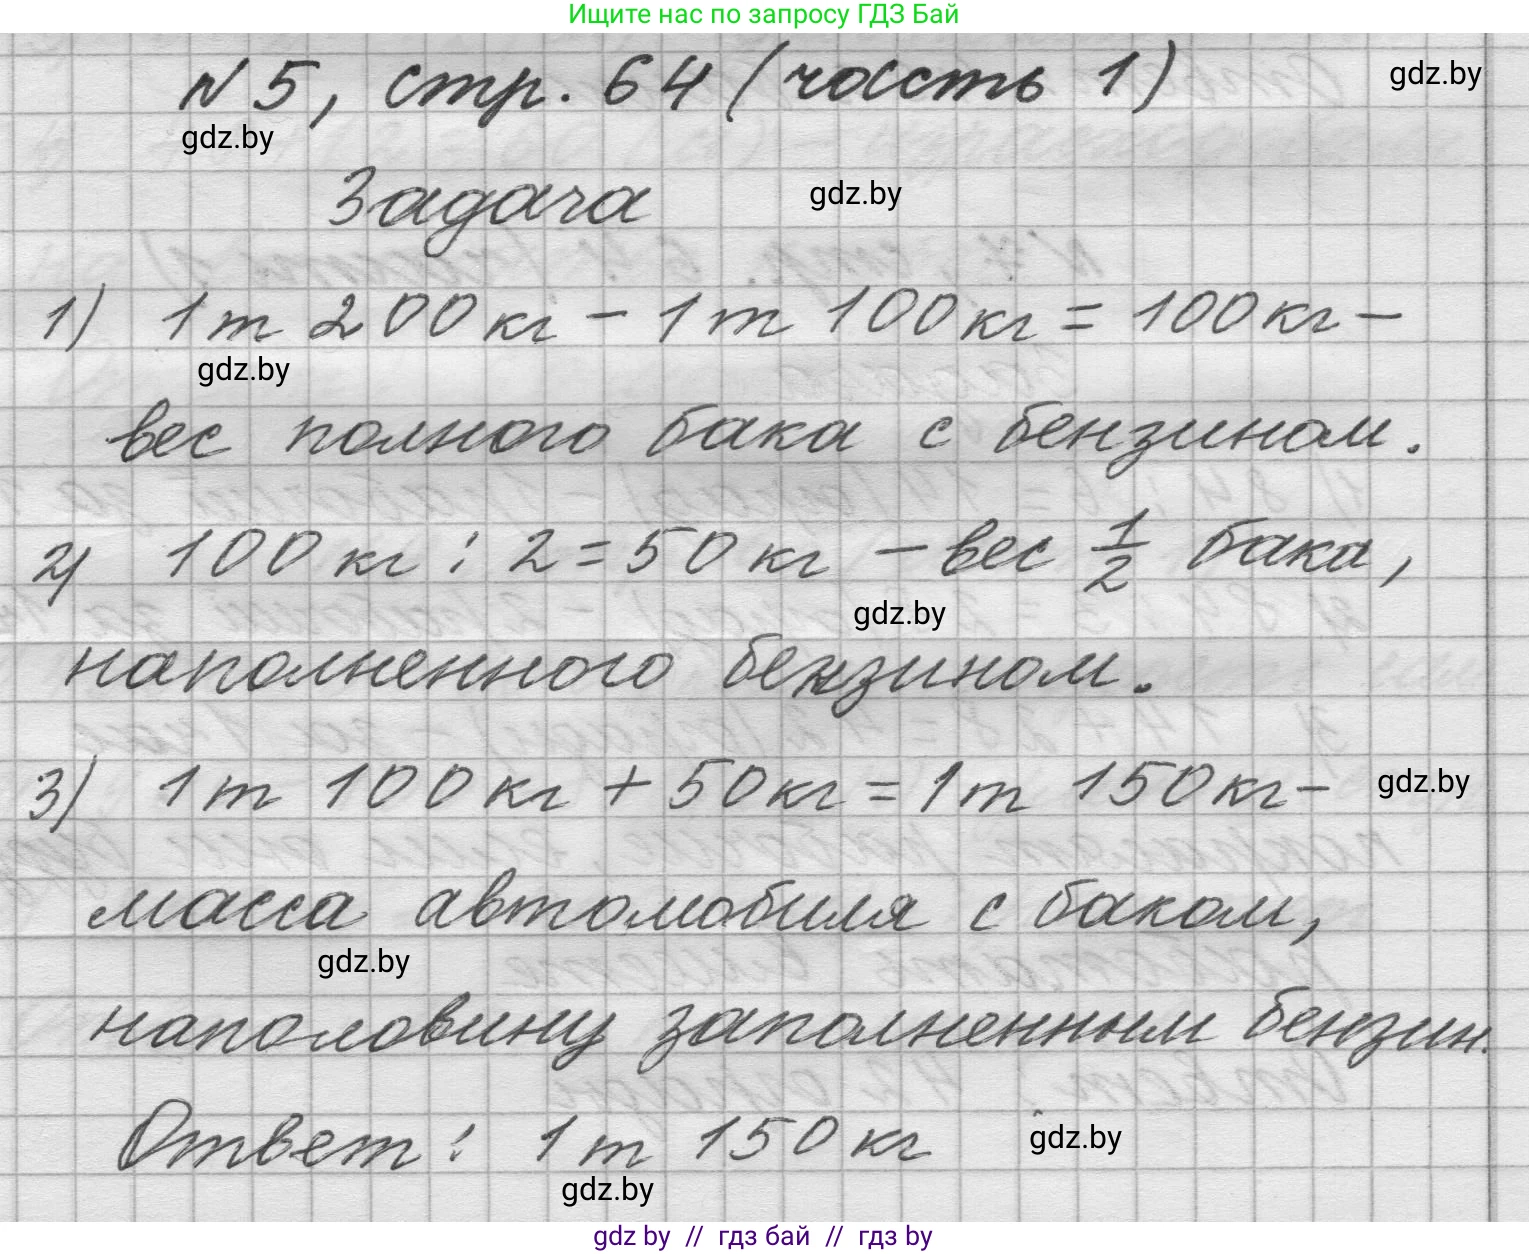 Ищите нас по запросу ГДЗ Бай
N 5, стр. 64 (часть 1)
gdz.by
gdz.by
Задача
gdz.by
1) 1 т 200 кг – 1 т 100 кг = 100 кг –
gdz.by
вес полного бака с бензином.
2) 100 кг : 2 = 50 кг – вес 1/2 бака,
gdz.by
наполненного бензином.
3) 1 т 100 кг + 50 кг = 1 т 150 кг –
gdz.by
масса автомобиля с баком,
gdz.by
наполовину заполненным бензин.
Ответ: 1 т 150 кг
gdz.by
gdz.by
gdz by // гдз бай // gdz by